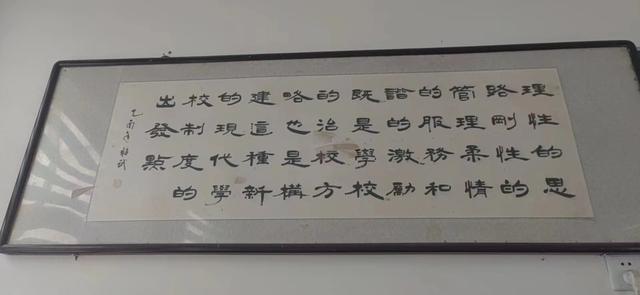 理性的思
路剛性的
管理柔情
的服務和
諧的激勵
既是學校
的治校方
略也是構
建這種新
的現代學
校制度的
出發點
乙酉年